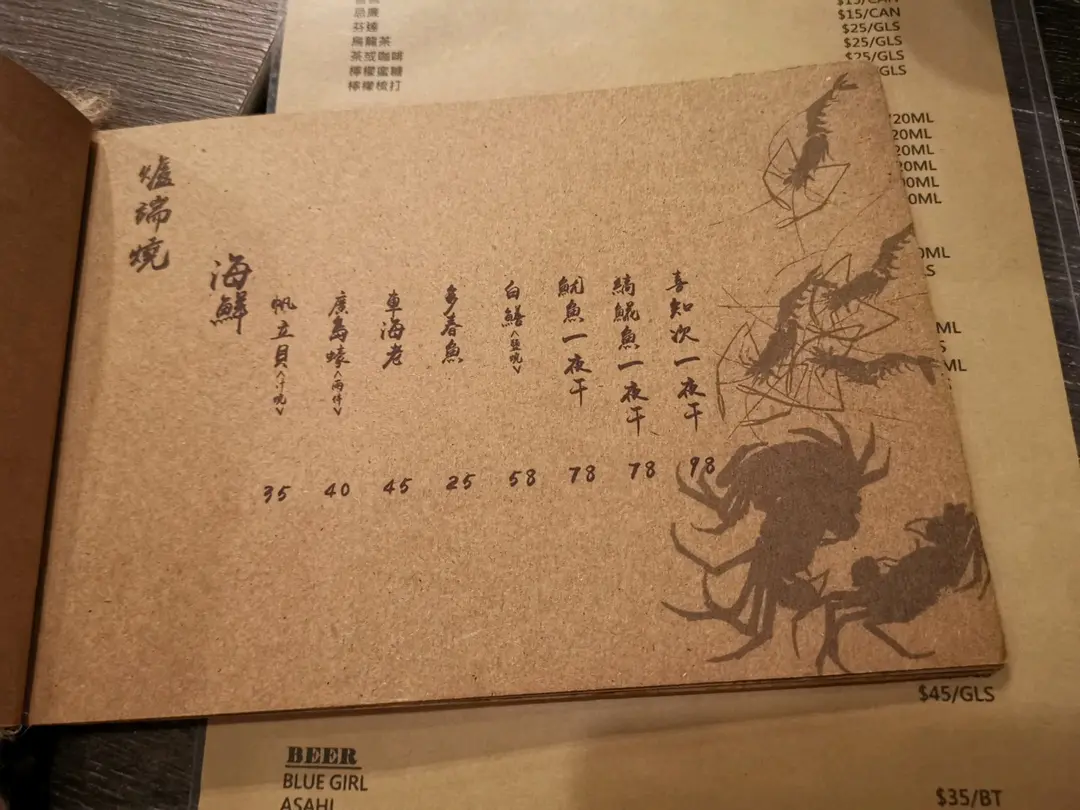 忌廉
芬達
烏龍茶
茶或咖啡
檸檬蜜糖
檸檬梳打
$15/CAN
$15/CAN
$25/GLS
$25/GLS
$25/GLS
/GLS
爐端燒
海鮮
帆立貝 35
廣島蠔<兩件> 40
車海老 45
多春魚 25
白鱔<鹽燒> 58
魷魚一夜干 78
縞鯤魚一夜干 78
喜知次一夜干 98
/20ML
20ML
20ML
20ML
00ML
0ML
0ML
S
ML
S
ML
$45/GLS
BEER
BLUE GIRL
ASAHI
$35/BT